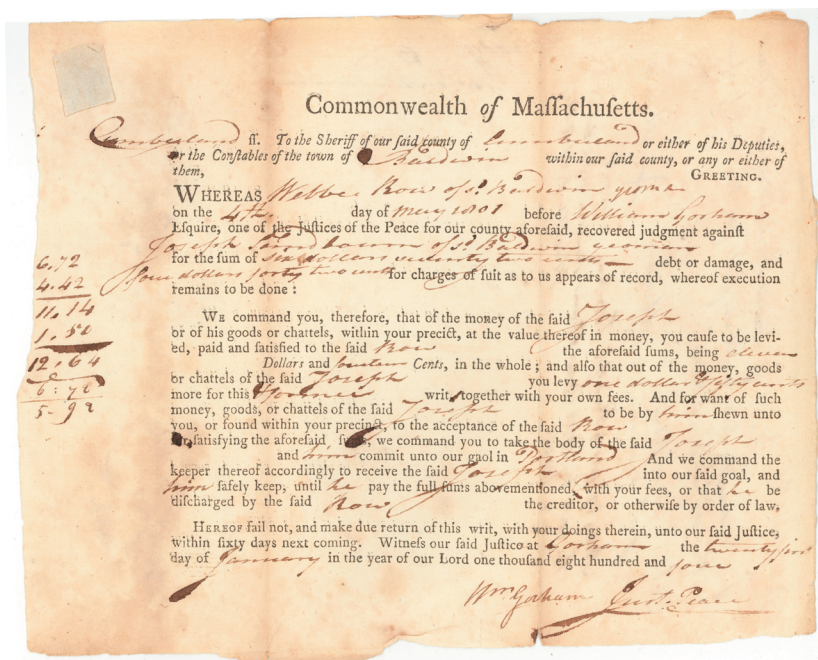 Commonwealth of Maſſachuſetts.
Cumberland ſſ. To the Sheriff of our ſaid county of Cumberland or either of his Deputies,
or the Conſtables of the town of Baldwin within our ſaid county, or any or either of
them, GREETING.
WHEREAS Row of sd. Baldwin yeoman
on the 4th. day of May 1801 before William Gorham
Eſquire, one of the Juſtices of the Peace for our county aforeſaid, recovered judgment againſt
Joseph of sd. Baldwin yeoman
for the ſum of six dollars seventy two cents debt or damage, and
four dollars forty two cents for charges of ſuit as to us appears of record, whereof execution
remains to be done :
WE command you, therefore, that of the money of the ſaid Joseph
or of his goods or chattels, within your precict, at the value thereof in money, you cauſe to be levi-
ed, paid and ſatisfied to the ſaid Row the aforeſaid ſums, being eleven
Dollars and fourteen Cents, in the whole ; and alſo that out of the money, goods
or chattels of the ſaid Joseph you levy one dollar & fifty cents
more for this & former writs together with your own fees. And for want of ſuch
money, goods, or chattels of the ſaid Joseph to be by him ſhewn unto
you, or found within your precinct, to the acceptance of the ſaid Row
for ſatisfying the aforeſaid ſums, we command you to take the body of the ſaid Joseph
and him commit unto our gaol in Portland And we command the
keeper thereof accordingly to receive the ſaid Joseph into our ſaid goal, and
him ſafely keep, until he pay the full ſums abovementioned, with your fees, or that he be
diſcharged by the ſaid Row the creditor, or otherwiſe by order of law,
HEREOF fail not, and make due return of this writ, with your doings therein, unto our ſaid Juſtice,
within ſixty days next coming. Witneſs our ſaid Juſtice at Gorham the twenty first
day of January in the year of our Lord one thouſand eight hundred and four
Wm Gorham Just. Peace
6.72
4.42
11.14
1.50
12.64
6.72
5.92